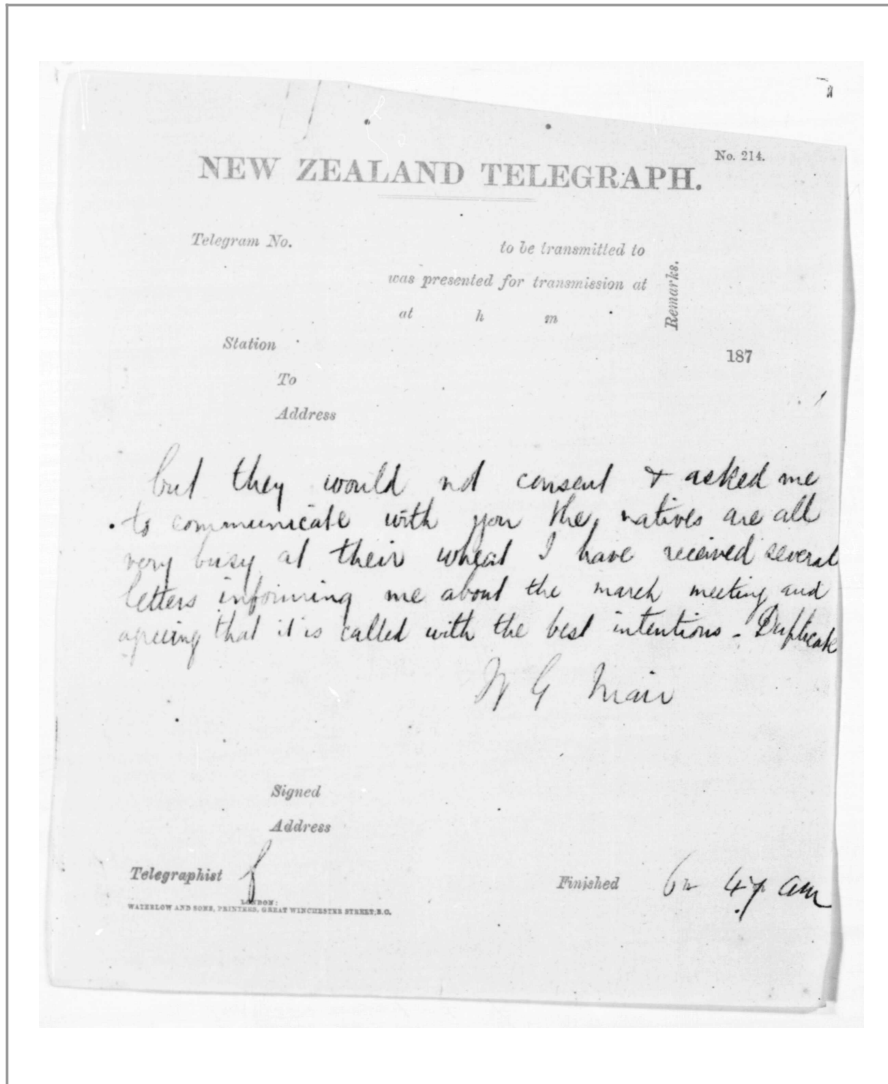 No. 214.
NEW ZEALAND TELEGRAPH.
Telegram No. to be transmitted to
was presented for transmission at
at h m
Remarks.
Station
187
To
Address
but they would not consent & asked me
to communicate with you the natives are all
very busy at their wheat I have received several
letters informing me about the march meeting and
agreeing that it is called with the best intentions - Duplicate
W G Mair
Signed
Address
Telegraphist
Finished 47 am
LONDON:
WATERLOW AND SONS, PRINTERS, GREAT WINCHESTER STREET, E.C.